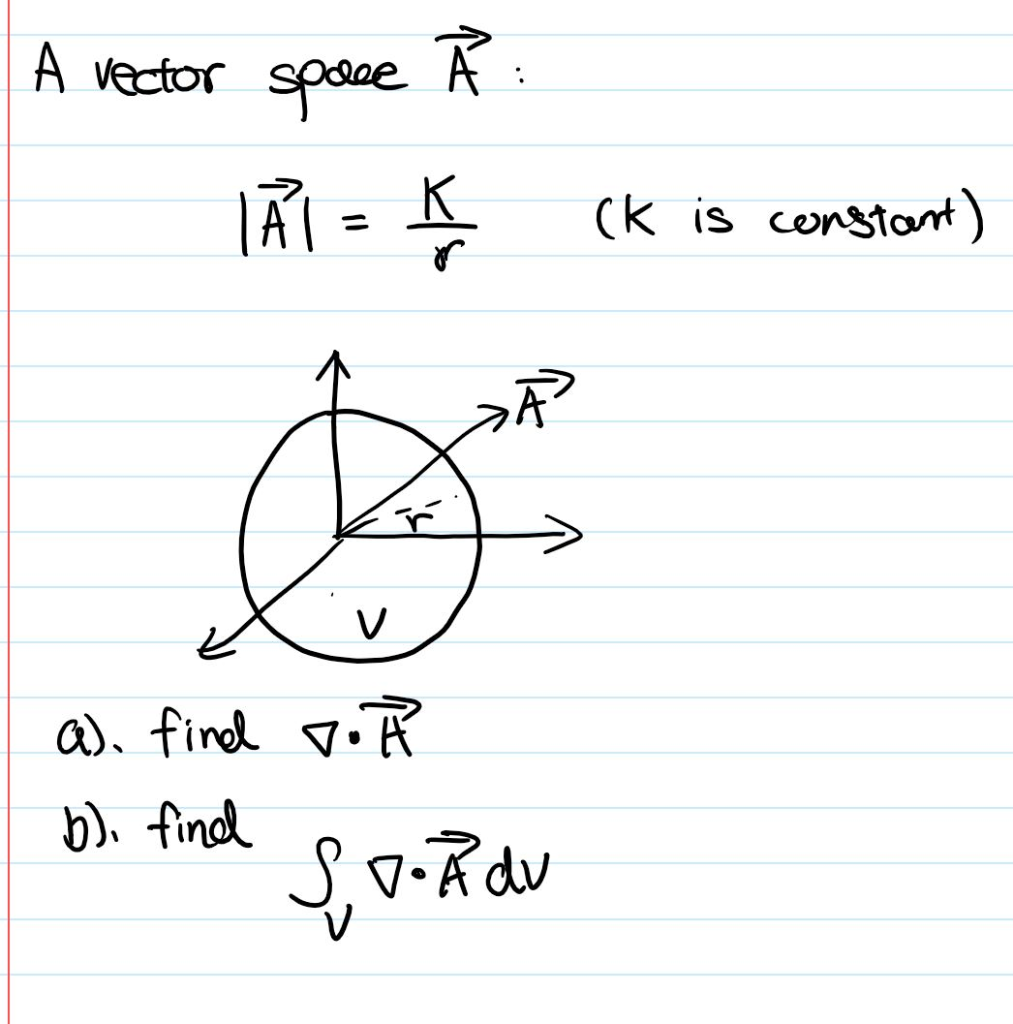 A vector space A⃗ :
|A⃗| = K/r (K is constant)
A⃗
r
V
a). find ∇·A⃗
b). find
∫_V ∇·A⃗ dV